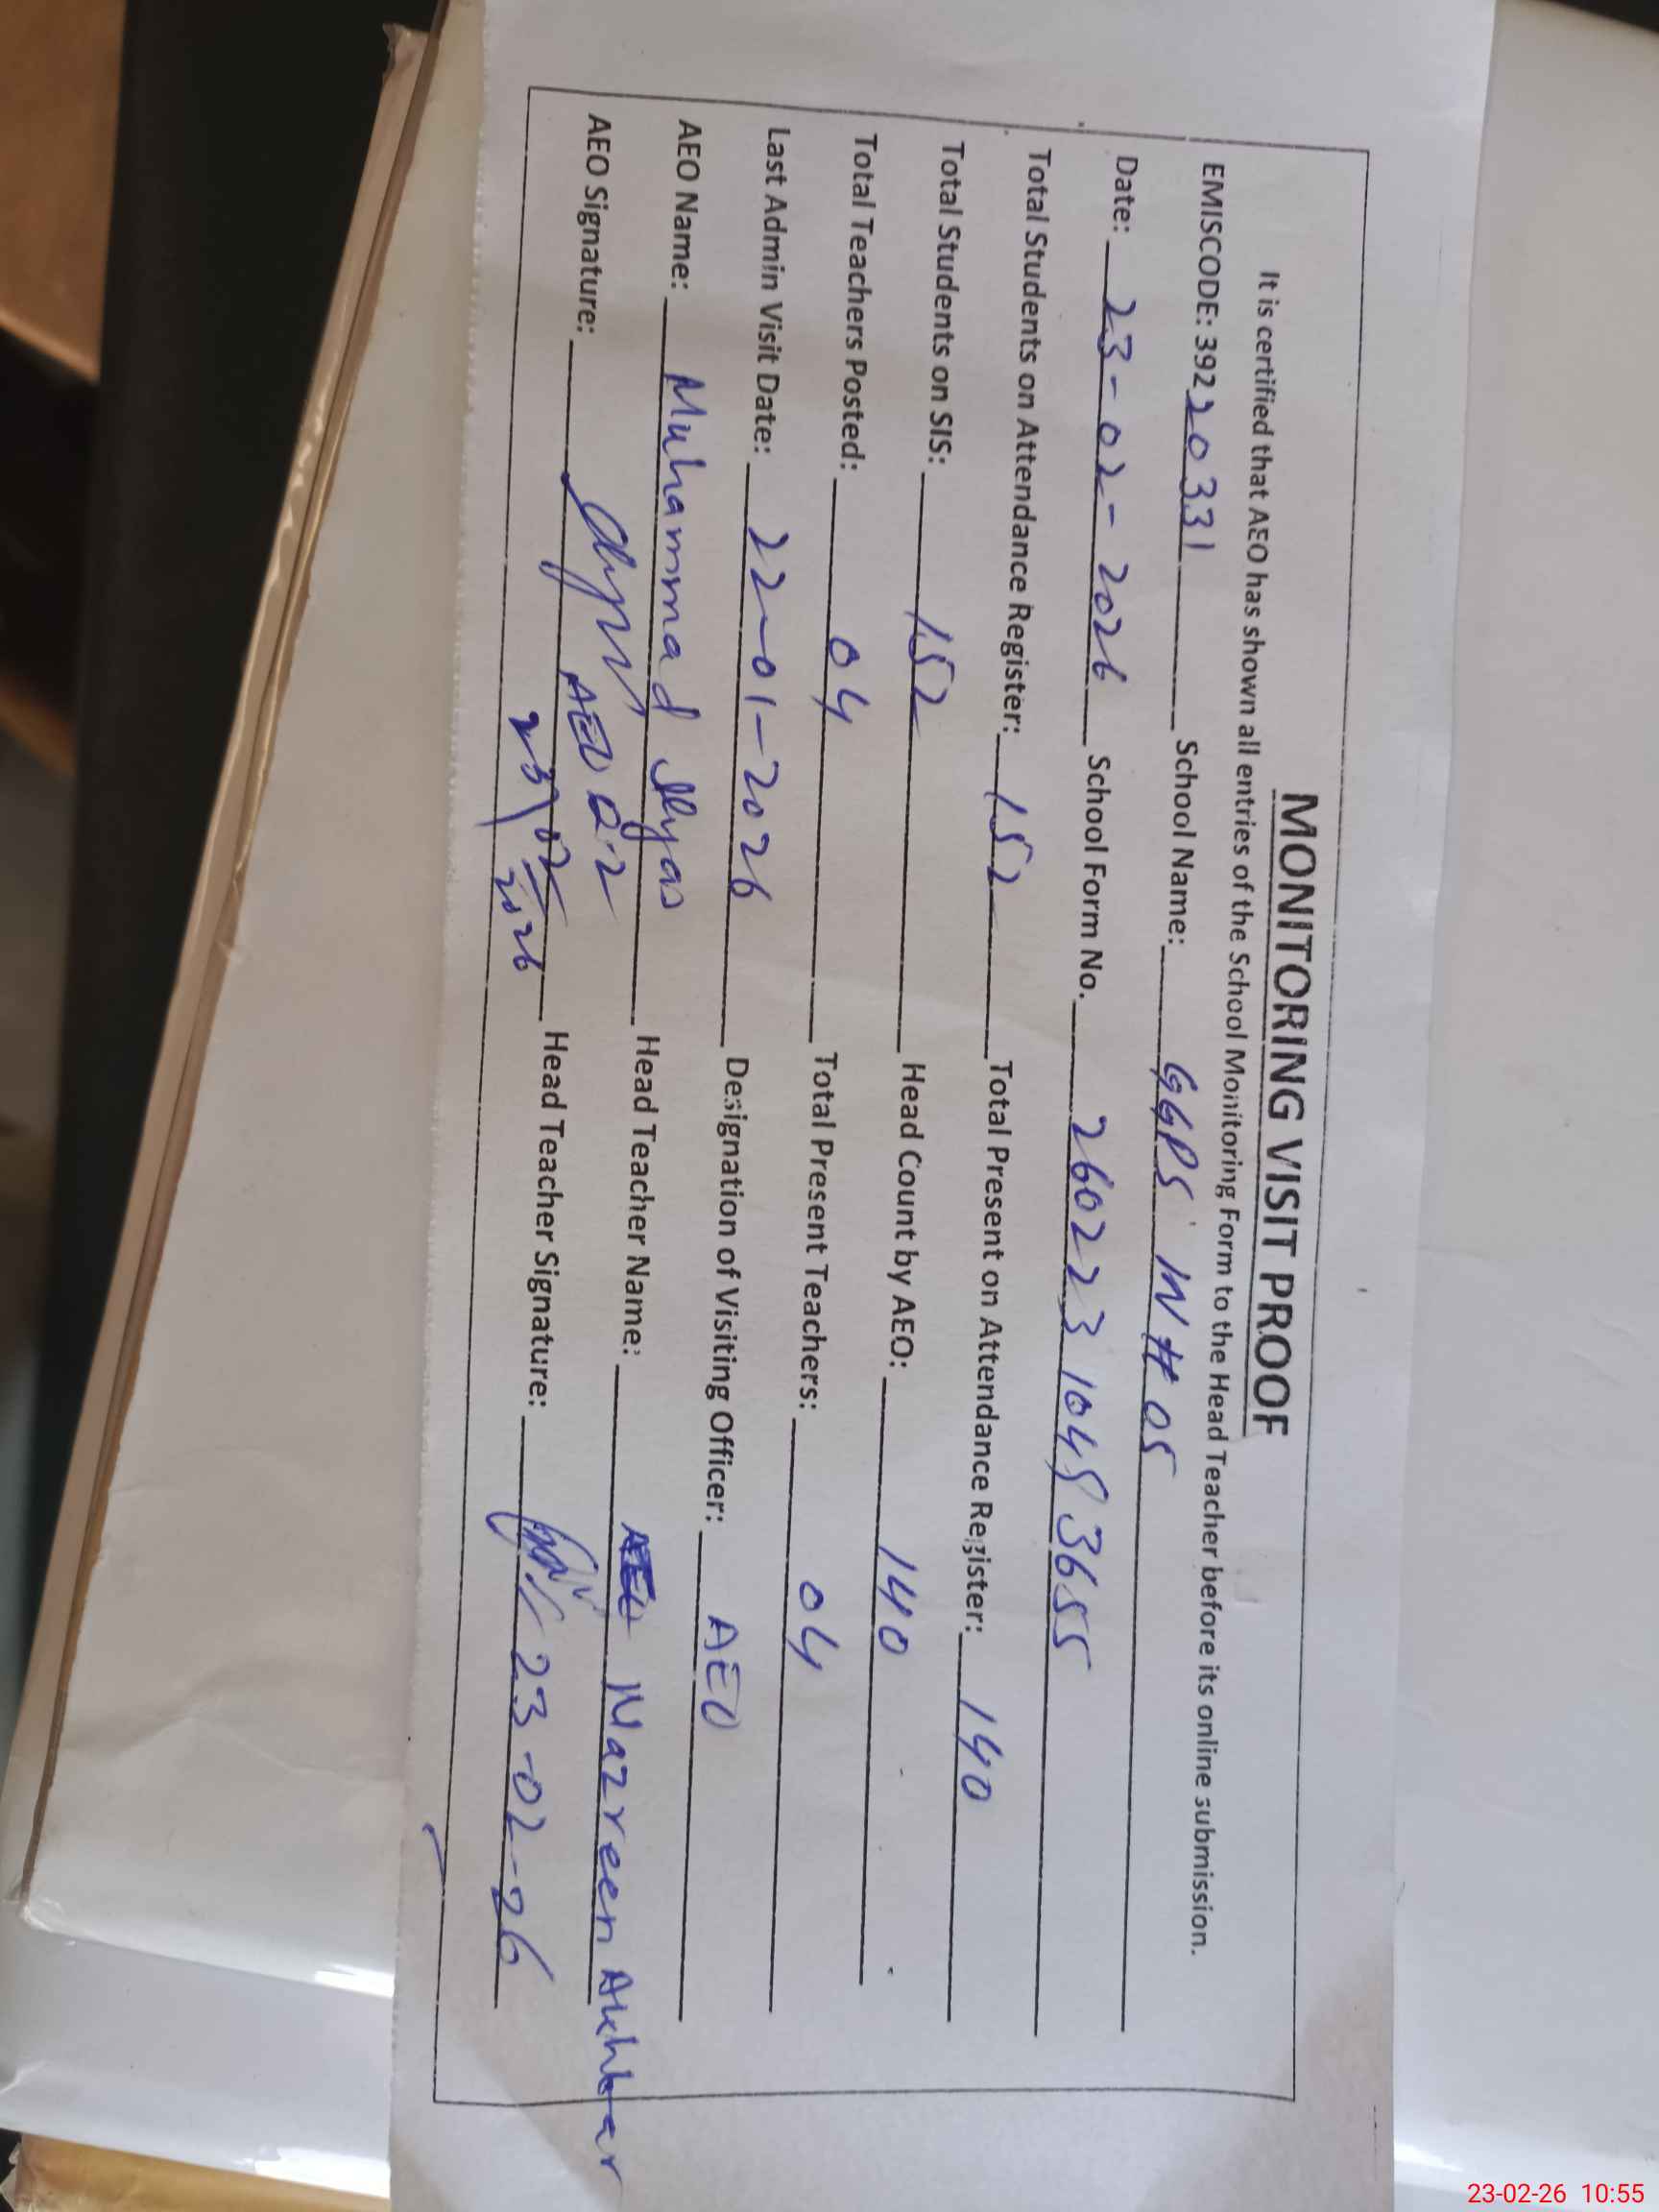 MONITORING VISIT PROOF
It is certified that AEO has shown all entries of the School Monitoring Form to the Head Teacher before its online submission.
EMISCODE: 39220331 School Name: GGPS IN # 05
Date: 23-02-2026 School Form No. 260223 1045 3655
Total Students on Attendance Register: 152 Total Present on Attendance Register: 140
Total Students on SIS: 152 Head Count by AEO: 140
Total Teachers Posted: 04 Total Present Teachers: 04
Last Admin Visit Date: 22-01-2026 Designation of Visiting Officer: AEO
AEO Name: Muhammad Ilyas Head Teacher Name: Nazreen Akhtar
AEO Signature: AEO Head Teacher Signature: 23-02-26
23/02/2026
23-02-26 10:55